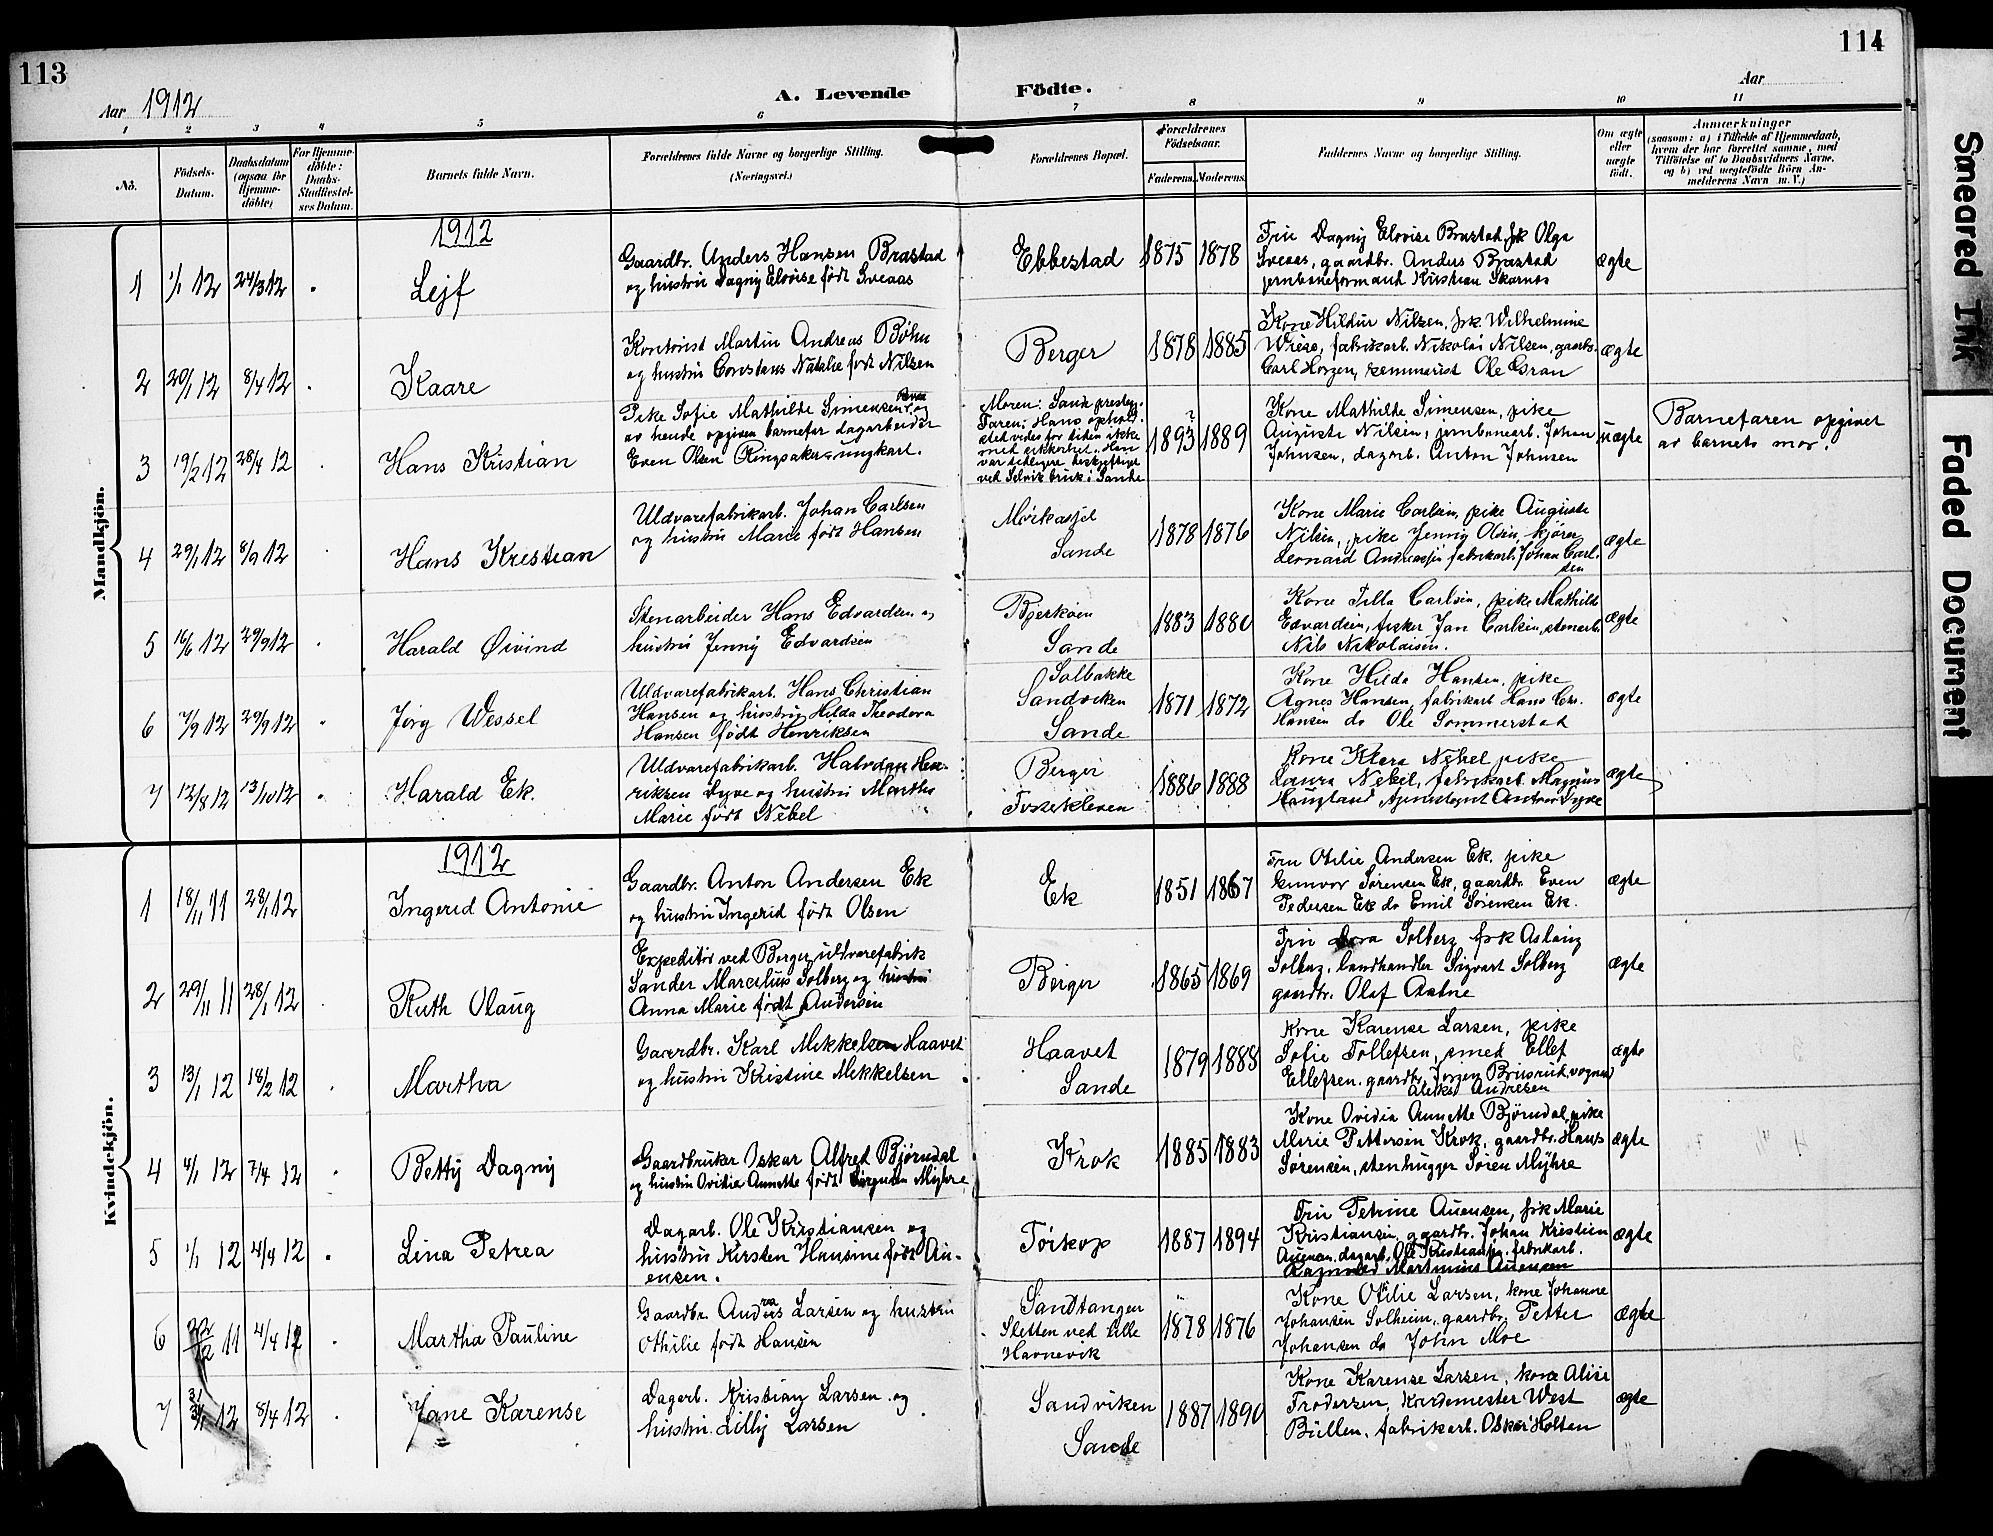 113
114
Aar 1912
A. Levende Födte.
Aar
1 2 3 4 5 6 7 8 9 10 11
No.
Födsels-Datum.
Daabsdatum (ogsaa for Hjemme-döbte)
For Hjemme-döbte: Daabs-Stadfæstel-ses Datum.
Barnets fulde Navn.
Forældrenes fulde Navne og borgerlige Stilling. (Næringsvei.)
Forældrenes Bopæl.
Forældrenes Födselsaar.
Faderens. Moderens.
Faddernes Navne og borgerlige Stilling.
Om ægte eller uægte födt.
Anmærkninger
(saasom: a) i Tilfælde af Hjemmedaab, hvem der har forrettet samme, med Tilföielse af to Daabsvidners Navne. og b) ved uægtefödte Börn An-melderens Navn m. V.)
Mandkjön.
1912
1 1/1 12 24/3 12 Lejf
Gaardbr. Anders Hansen Brastad
og hustru Dagny Elovise født Sveaas
Ebbestad 1875 1878
Fru Dagny Elovise Brastad frk Olga
Sveaas, gaardbr. Anders Brastad
jernbaneformand Kristian Skarnes
ægte
2 20/1 12 8/4 12 Kaare
Kontorist Martin Andreas Bøhn
og hustru Constans Natalie født Nilsen
Berger 1878 1885
Kone Hildur Nilsen, frk. Wilhelmine
Wriese, fabrikarb. Nikolai Nilsen, gaardb.
Carl Horgen, kemmerist Ole Gran
ægte
3 19/2 12 28/4 12 Hans Kristian
Pike Sofie Mathilde Simensen og
av hende opgiven barnefar dagarbeider
Even Olsen Ringsaker - ungkarl.
Moren: Sande prestegj.
Faren: Hans ophold-
sted vides for tiden ikke
med sikkerhet. Han
var tidligere beskjæftiget
ved Selvik bruk i Sande
1893 1889
Kone Mathilde Simensen, pike
Auguste Nilsen, jernbanearb. Johan
Johnsen, dagarb. Anton Johnsen
uægte
Barnefaren opgivet
av barnets mor.
4 29/1 12 8/9 12 Hans Kristian
Uldvarefabrikarb. Johan Carlsen
og hustru Marie født Hansen
Sande
1878 1876
Kone Marie Carlsen, pike Auguste
Nilsen, pike Jenny Olsen, kjører
Leonard Andreassen fabrikarb. Johan Carl-
sen
ægte
5 16/6 12 29/9 12 Harald Øivind
Stenarbeider Hans Edvardsen og
hustru Jenny Edvardsen
Bjerkøen
Sande
1883 1880
Kone Tilla Carlsen, pike Mathilde
Edvardsen, fisker Jan Carlsen, stenarb.
Nils Nikolaisen.
ægte
6 7/9 12 29/9 12 Jørg Wessel
Uldvarefabrikarb. Hans Christian
Hansen og hustru Hilda Theodora
Hansen født Henriksen
Solbakke
Sandviken
Sande
1871 1872
Kone Hilda Hansen, pike
Agnes Hansen, fabrikarb Hans Chr.
Hansen do Ole Sommerstad
ægte
7 12/8 12 13/10 12 Harald Ek.
Uldvarefabrikarb. Halvdan Hen-
riksen Dyve og hustru Martha
Marie født Nebel
Berger
Fossekleven
1886 1888
Kone Klara Nebel pike
Laura Nebel, fabrikarb. Magnus
Haugland
ægte
Kvindekjön.
1912
1 18/11 11 28/1 12 Ingerid Antonie
Gaardbr. Anton Andersen Ek
og hustru Ingerid født Olsen
Ek 1851 1867
Fru Otilie Andersen Ek. pike
Gunvor Sørensen Ek, gaardbr. Even
Pedersen Ek do Emil Sørensen Ek.
ægte
2 29/11 11 28/1 12 Ruth Olaug
Expeditør ved Berger uldvarefabrik
Sander Marcelius Solberg og hustru
Anna Marie født Andersen
Berger 1865 1869
Fru Dora Solberg frk Aslaug
Solberg, landhandler Sigvart Solberg
gaardbr. Olaf Aatne
ægte
3 13/1 12 18/2 12 Martha
Gaardbr. Karl Mikkelsen Haavet
og hustru Kristine Mikkelsen
Haavet
Sande
1879 1888
Kone Karense Larsen, pike
Sofie Tollefsen, smed Ellef
Ellefsen, gaardbr. Jørgen Brusrud, vognm
Andresen
ægte
4 4/1 12 7/4 12 Betty Dagny
Gaardbruker Oskar Alfred Bjørndal
og hustru Ovidia Annette født Jørgensen Myhre
Krok 1885 1883
Kone Ovidia Annette Bjørndal, pike
Marie Pettersen Krok, gaardbr. Hans
Sørensen, stenhugger Søren Myhre
ægte
5 1/1 12 4/4 12 Lina Petrea
Dagarb. Ole Kristiansen og
hustru Kirsten Hansine født Au-
ensen.
Tørkop 1887 1894
Fru Petrine Auensen, frk Marie
Kristiansen, gaardbr. Johan Kristian
Auensen, dagarb. Ole Kristiansen, fabrikarb.
Ragnvald Martinius Auensen
ægte
6 11 4/4 12 Martha Pauline
Gaardbr. Andreas Larsen og hustru
Othilie født Hansen
Sandtangen
Sletten ved lille
Havnevik
1878 1876
Kone Otilie Larsen, kone Johanne
Johansen Solheim, gaardbr. Petter
Johansen do John Moe
ægte
7 31/1 12 8/4 12 Jane Karense
Dagarb. Kristian Larsen og
hustru Lilly Larsen
Sandviken
Sande
1887 1890
Kone Karense Larsen, kone Alise
Frodersen, Kardemester West
Büllen, fabrikarb. Oskar Holten
ægte
Smeared Ink
Faded Document